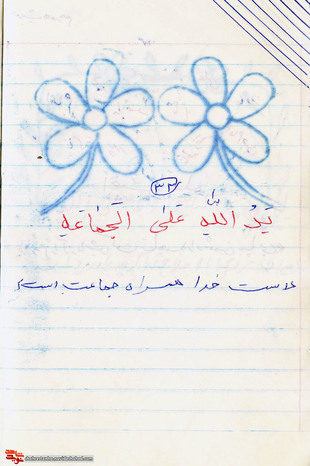 ۳۲
یَدُ اللهِ عَلَی الجَماعَةِ
دست خدا همراه جماعت است